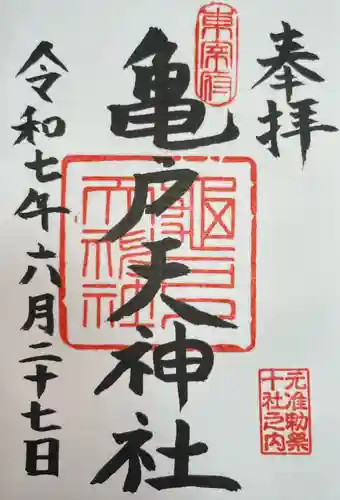 奉拝
東宰府
亀戸天神社
亀戸天神社
元准勅祭
十社之内
令和七年六月二十七日